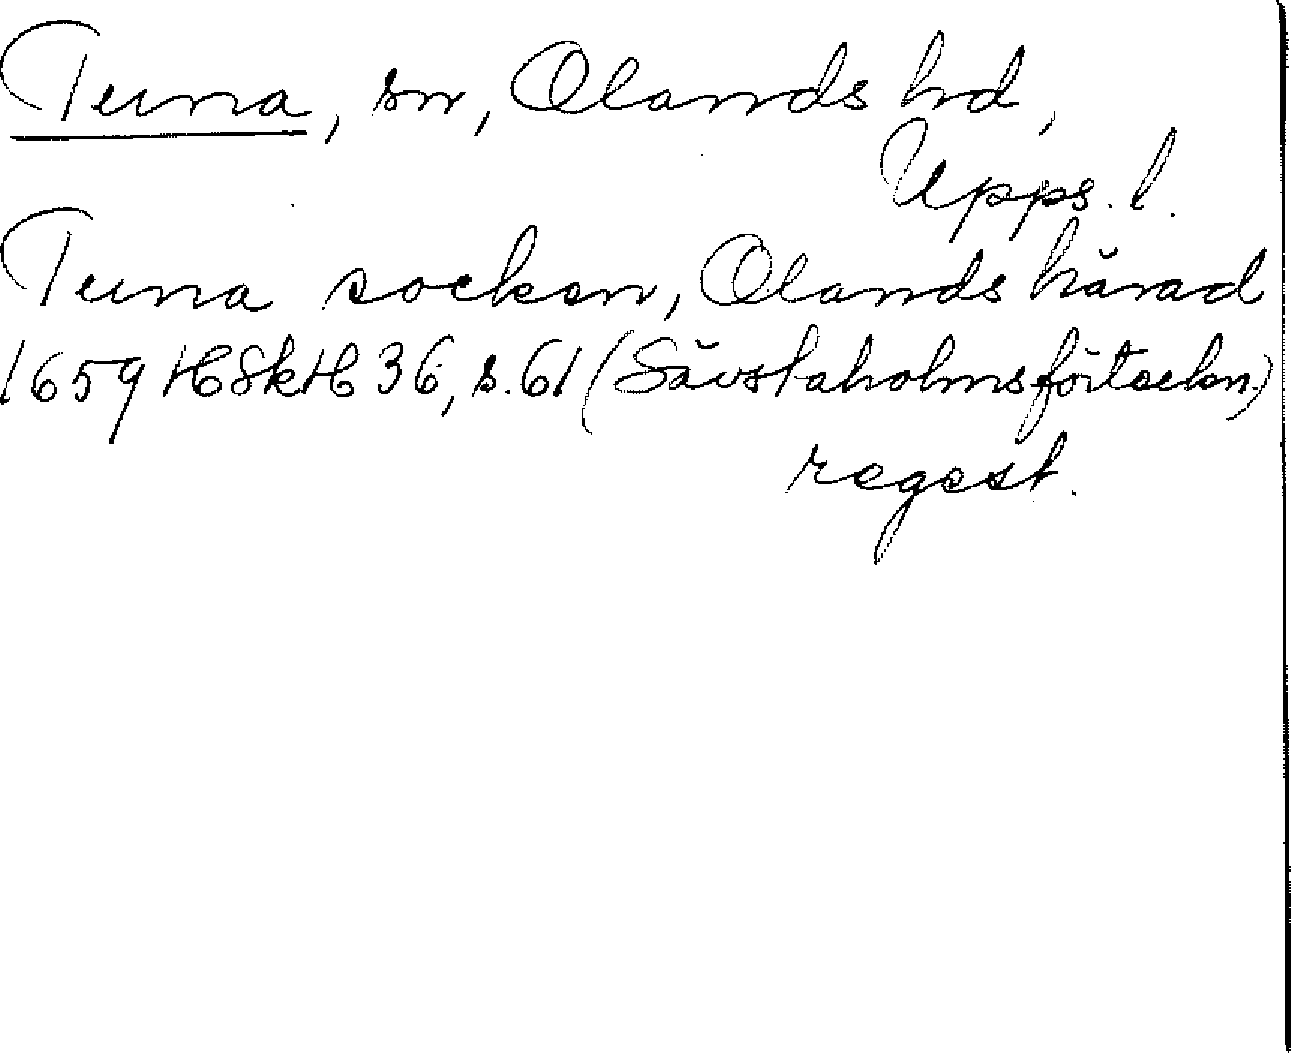 Tuna, sn, Olands hd,
Upps. l.
Tuna socken, Olands härad
1659 HSkH 36, s. 61 (Sävstaholmsförteckn.)
regest.